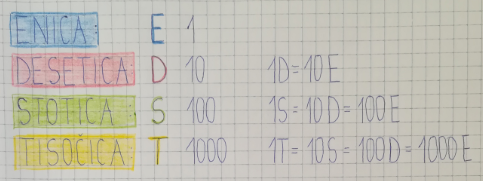 ENICA: E 1
DESETICA: D 10 1D = 10 E
STOTICA: S 100 1S = 10 D = 100 E
TISOČICA: T 1000 1T = 10S = 100D = 1000 E